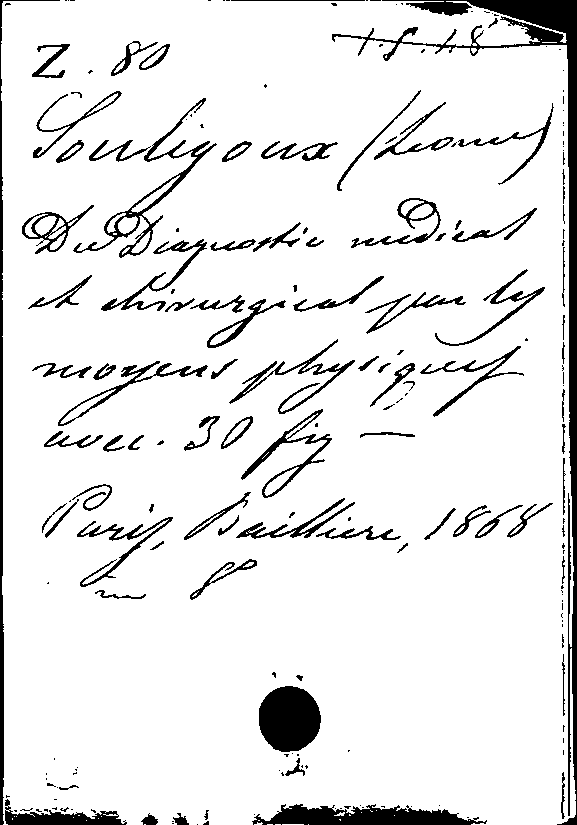 Z. 80
1.8.48
Souligoux (Leonce)
Du Diagnostic medical
et chirurgical par les
moyens physiques
avec. 30 fig —
Paris, Bailliere, 1868
in 8º